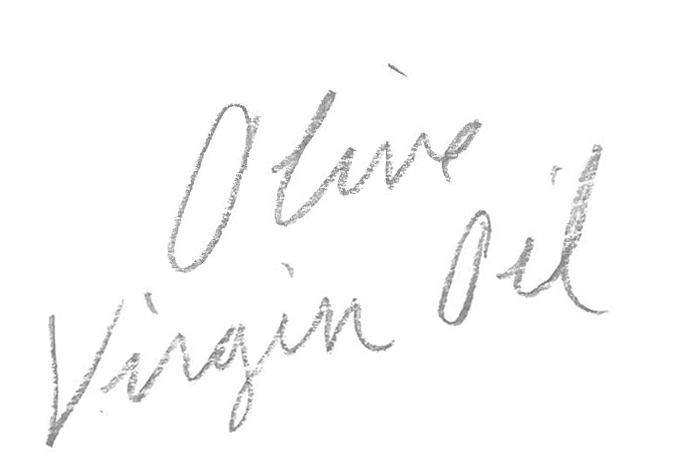 Olive
Virgin Oil